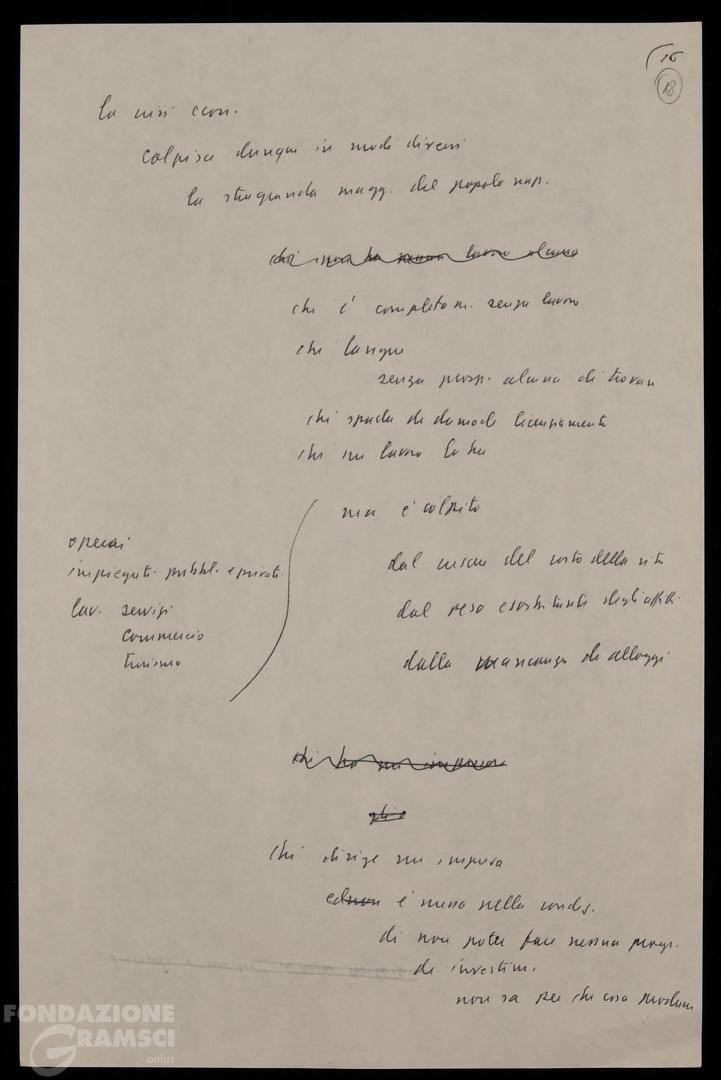 16
18
la crisi econ.
colpisce dunque in modi diversi
la stragrande magg. del popolo nap.
chi non ha lavoro alcuno
chi è completam. senza lavoro
chi langue
senza prosp. alcuna di trovare
chi spada di damocle licenziamento
chi un lavoro lo ha
ma è colpito
operai
impiegati pubbl. e privati
lav. servizi
commercio
turismo
dal crescere del costo della vita
dal peso esorbitante degli affitti
dalla mancanza di alloggi
chi ha un
gli
chi dirige un impresa
ed non è messo nella condiz.
di non poter fare nessun progr.
di investim.
non sa per che cosa produrre
FONDAZIONE
GRAMSCI
onlus